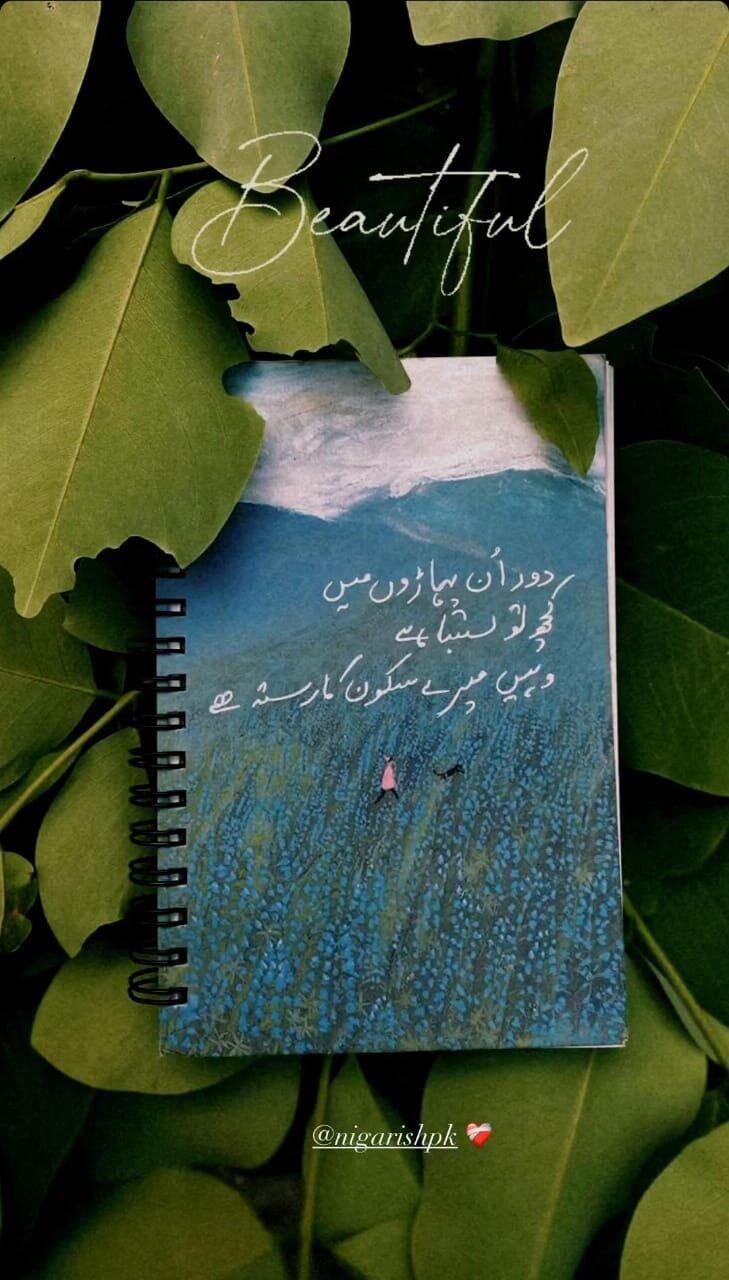 Beautiful
دور اُن پہاڑوں میں
کچھ تو بستا ہے
وہیں میرے سکون کا رستہ ہے
@nigarishpk